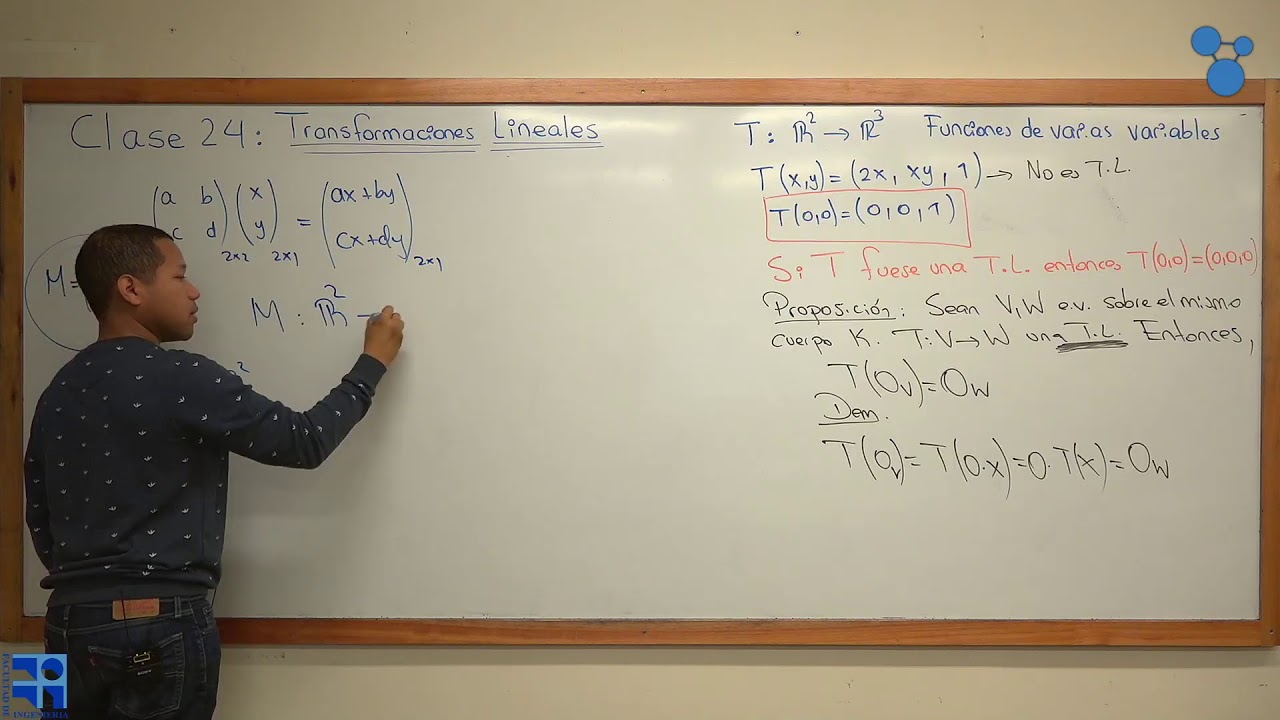 Clase 24: Transformaciones Lineales
(a b
c d)2x2 (x
y)2x1 = (ax+by
cx+dy)2x1
M=
M : ℝ² –
²
T: ℝ² → ℝ³ Funciones de varias variables
T(x,y)=(2x, xy, 1) → No es T.L.
T(0,0)=(0,0,1)
Si T fuese una T.L. entonces T(0,0)=(0,0,0)
Proposición: Sean V,W e.v. sobre el mismo
cuerpo K. T:V→W una T.L. Entonces,
T(0v)=0w
Dem.
T(0v)=T(0·x)=0·T(x)=0w
FACULTAD DE
INGENIERIA